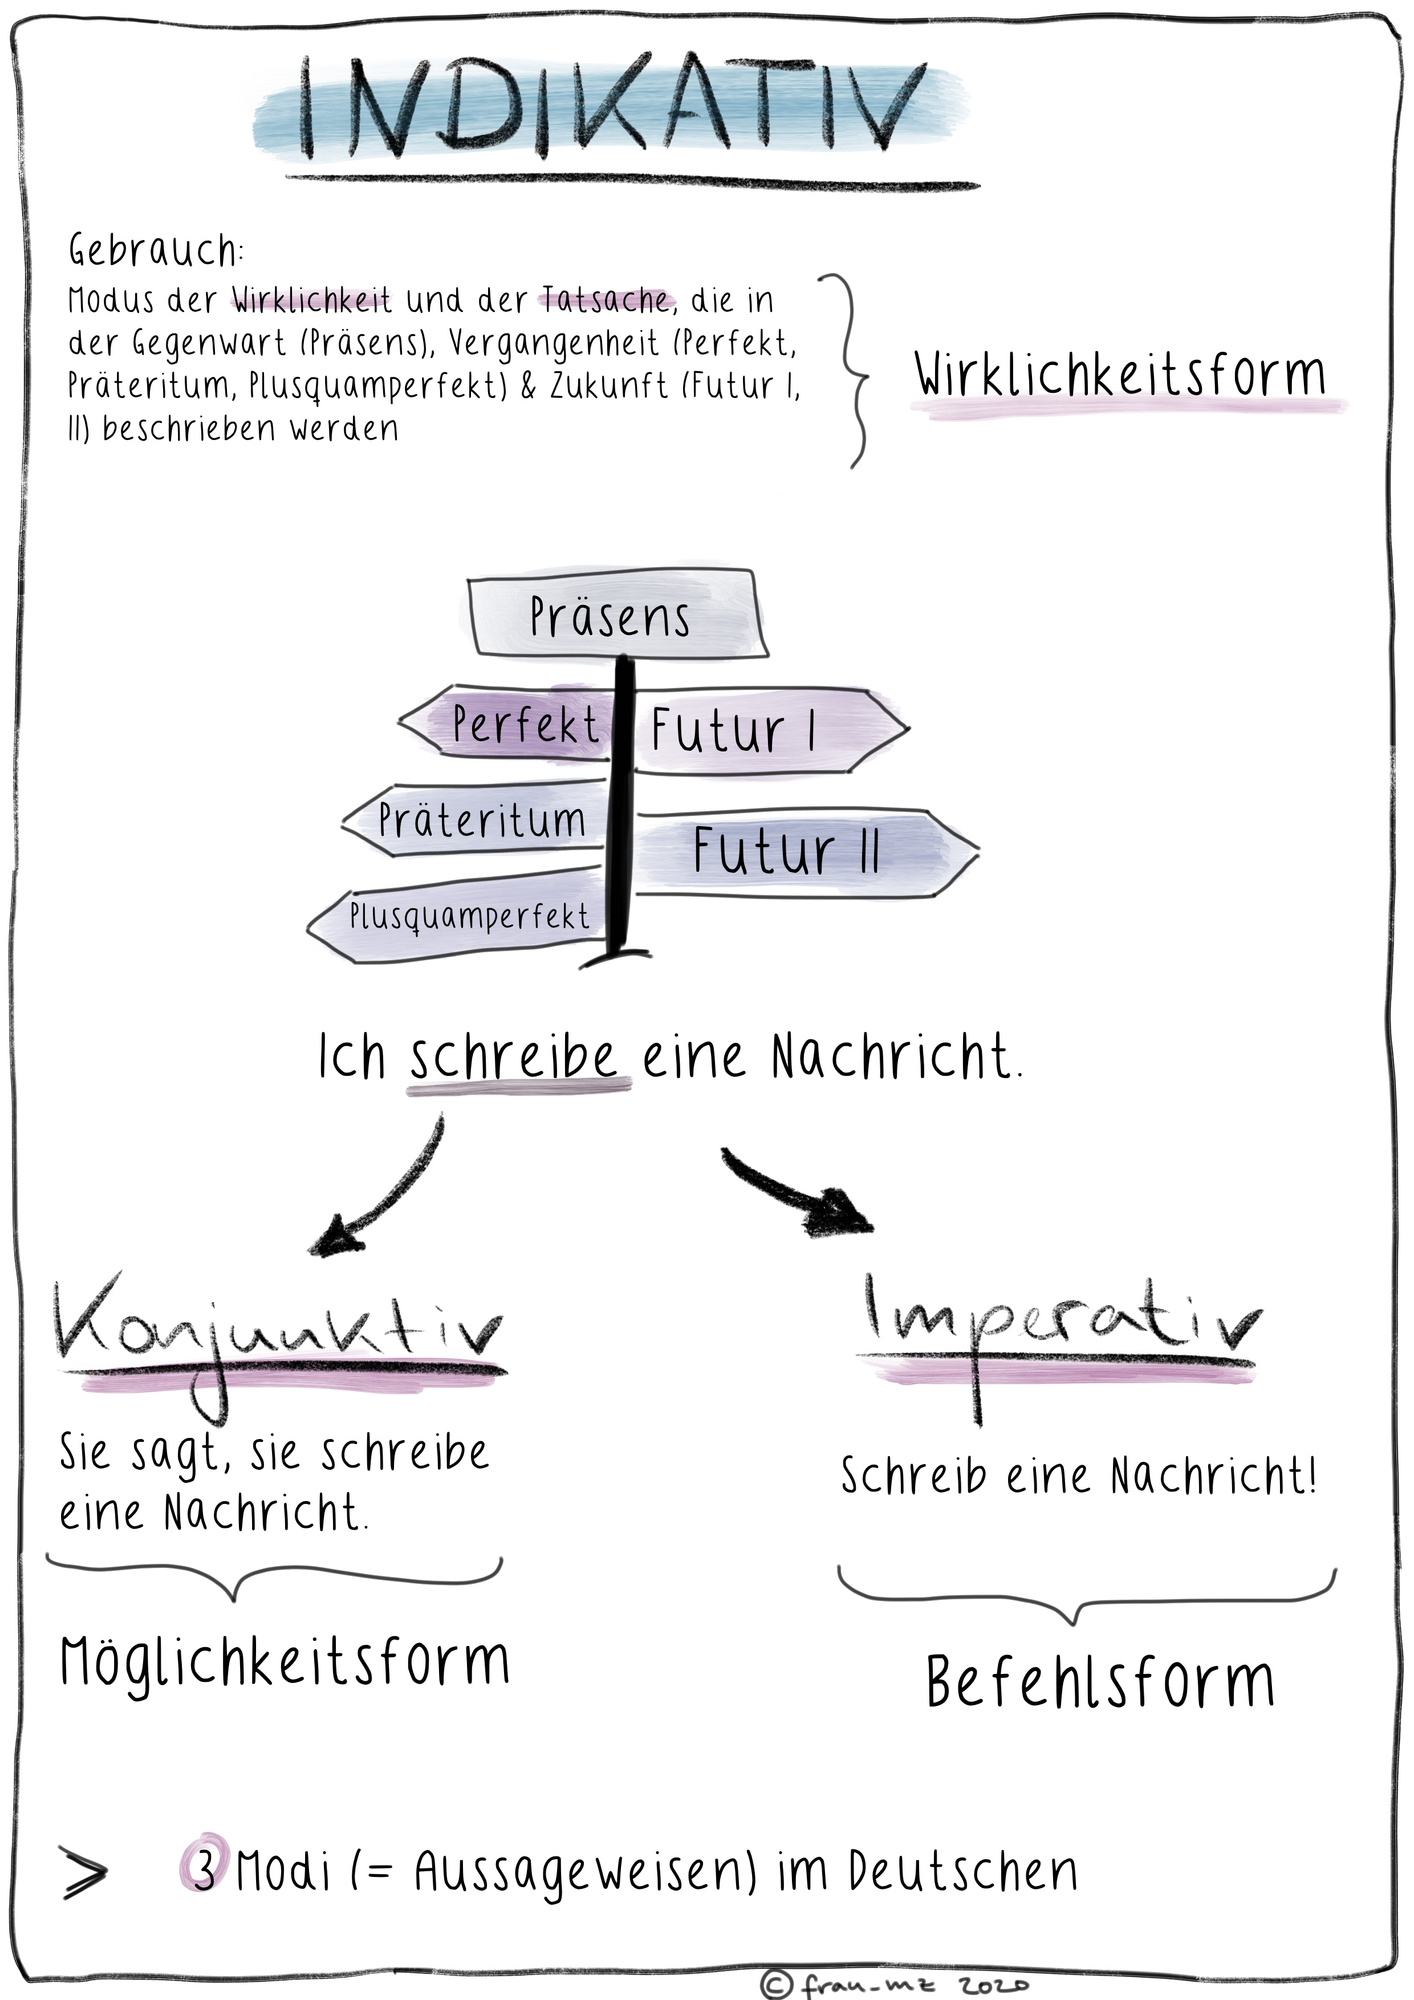 INDIKATIV
Gebrauch:
Modus der Wirklichkeit und der Tatsache, die in
der Gegenwart (Präsens), Vergangenheit (Perfekt,
Präteritum, Plusquamperfekt) & Zukunft (Futur I,
II) beschrieben werden
Wirklichkeitsform
Präsens
Perfekt
Futur I
Präteritum
Futur II
Plusquamperfekt
Ich schreibe eine Nachricht.
Konjunktiv
Sie sagt, sie schreibe
eine Nachricht.
Möglichkeitsform
Imperativ
Schreib eine Nachricht!
Befehlsform
> 3 Modi (= Aussageweisen) im Deutschen
© frau_mz 2020